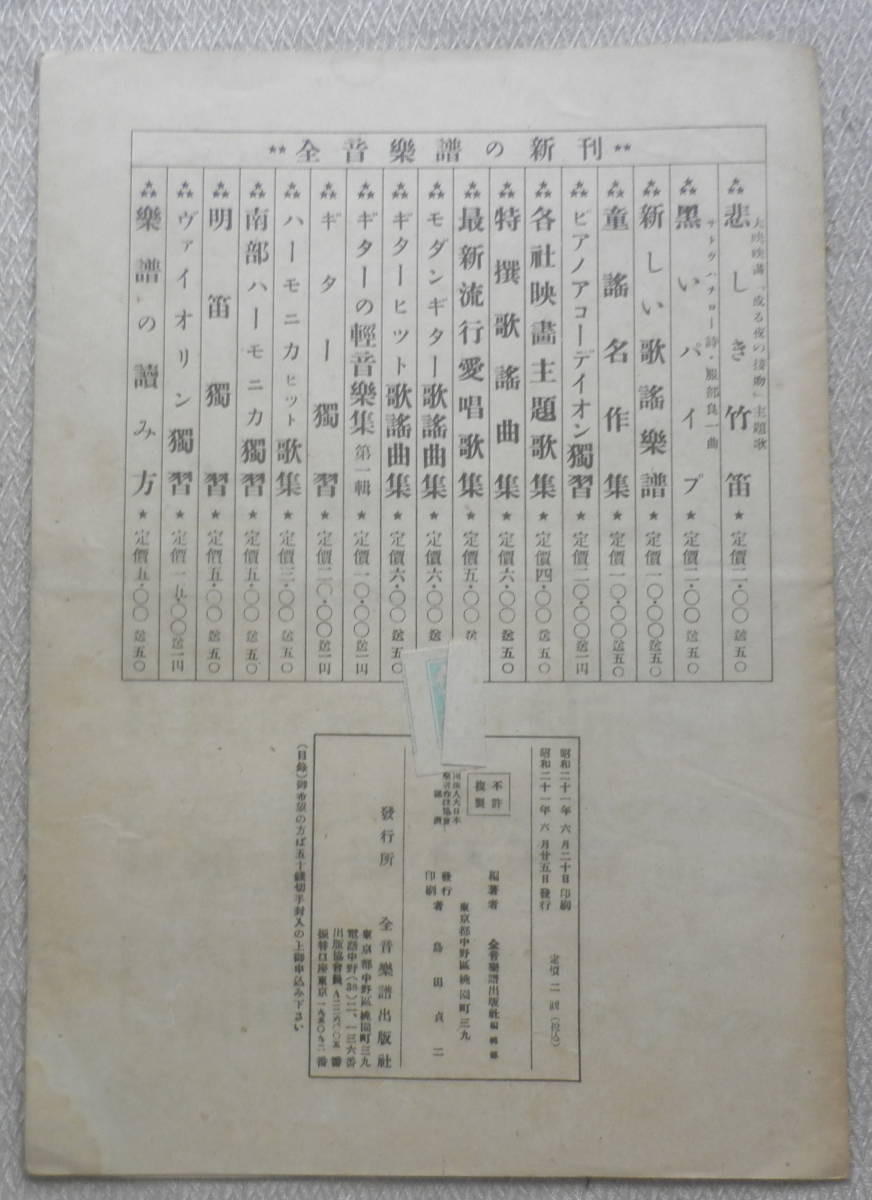 ★★ 全音樂譜の新刊 ★★
大映映畵「或る夜の接吻」主題歌
悲しき竹笛 ★ 定價二・〇〇 送五〇
サトウハチロー詩・服部良一曲
黑いパイプ ★ 定價二・〇〇 送五〇
新しい歌謠樂譜 ★ 定價一〇・〇〇 送五〇
童謠名作集 ★ 定價一〇・〇〇 送五〇
ピアノアコーデイオン獨習 ★ 定價二〇・〇〇 送一円
各社映畫主題歌集 ★ 定價四・〇〇 送五〇
特撰歌謠曲集 ★ 定價六・〇〇 送五〇
最新流行愛唱歌集 ★ 定價五・〇〇 送
モダンギター歌謠曲集 ★ 定價六・〇〇
ギターヒット歌謠曲集 ★ 定價六・〇〇 送五〇
ギターの輕音樂集 第一輯 ★ 定價一〇・〇〇 送一円
ギター獨習 ★ 定價二〇・〇〇 送一円
ハーモニカヒット歌集 ★ 定價三・〇〇 送五〇
南部ハーモニカ獨習 ★ 定價五・〇〇 送五〇
明笛獨習 ★ 定價五・〇〇 送五〇
ヴァイオリン獨習 ★ 定價一五・〇〇 送一円
樂譜の讀み方 ★ 定價五・〇〇 送五〇
昭和二十一年 六月二十日 印刷
昭和二十一年 六月廿五日 發行
定價 二圓 (税込)
不許複製
編著者 全音樂譜出版社編輯部
東京都中野區桃園町三九
發行印刷者 島田貞二
發行所 全音樂譜出版社
東京都中野區桃園町三九
電話中野(38)二、一三六番
(目錄)御希望の方ば五十錢切手封入の上御申込み下さい